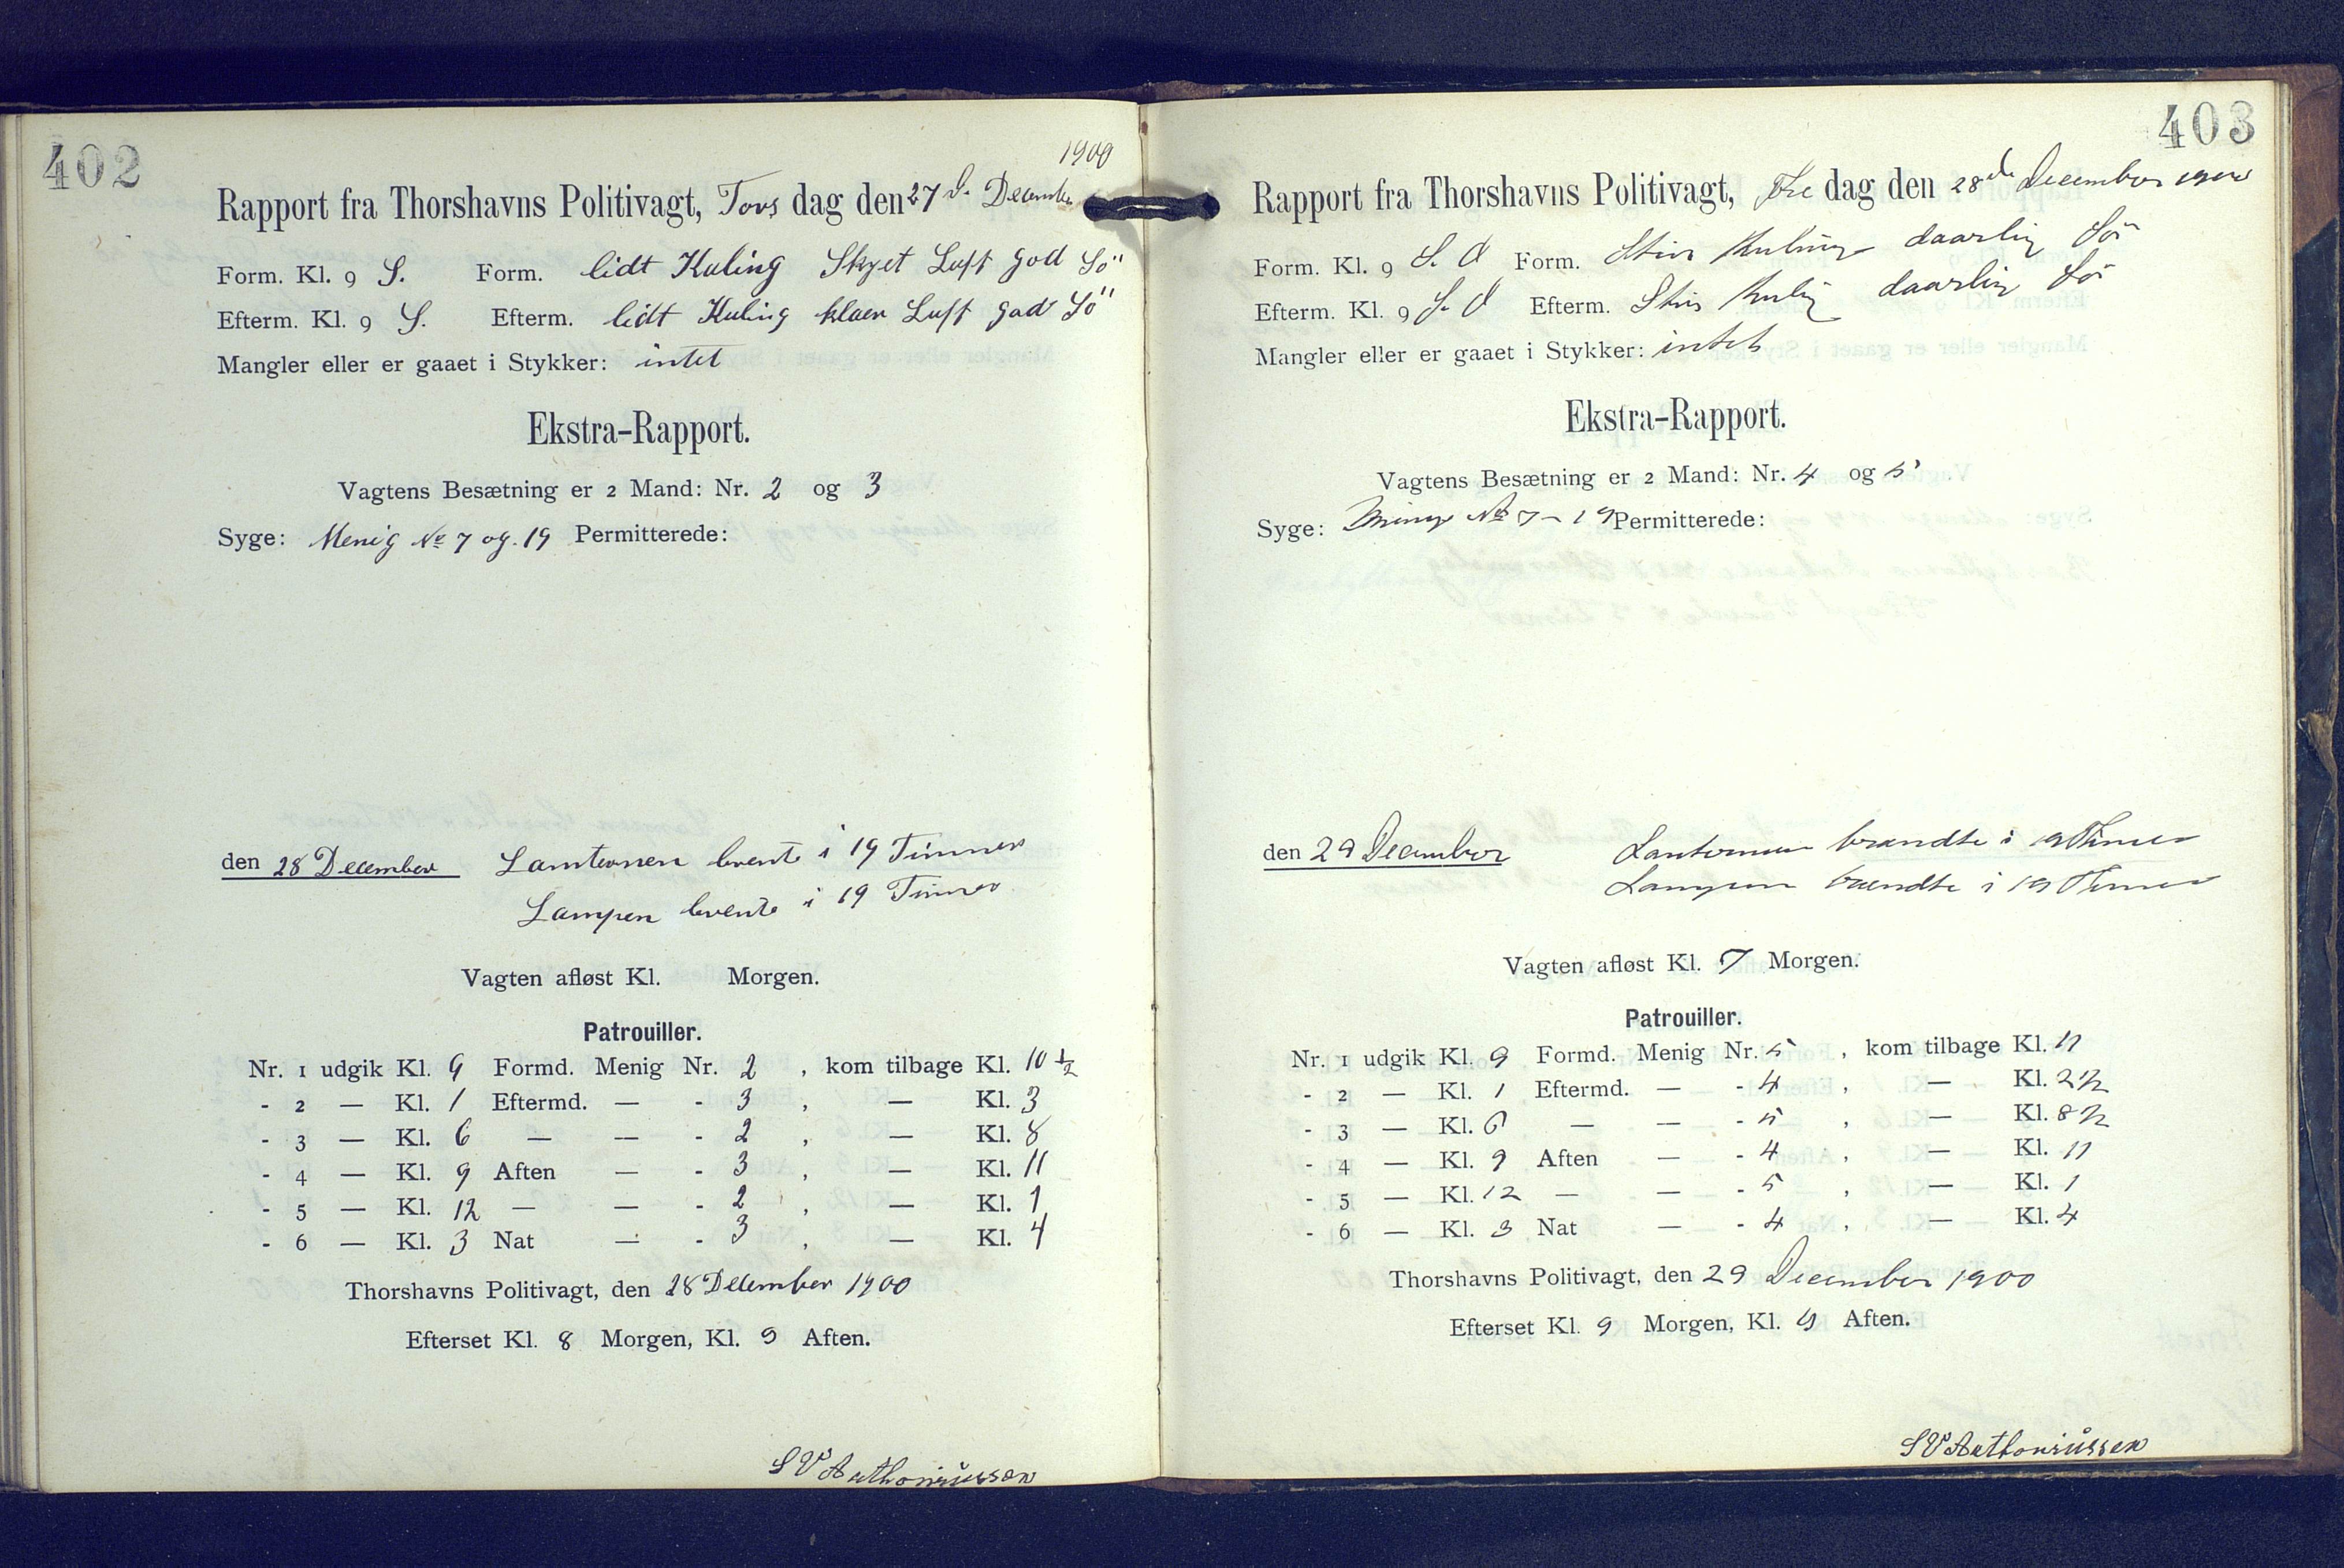 402
1900
Rapport fra Thorshavns Politivagt, Tors dag den 27 d. December
Form. Kl. 9 S. Form. lidt Kuling Skyet Luft god Sö
Efterm. Kl. 9 S. Efterm. lidt Kuling klaer Luft god Sö
Mangler eller er gaaet i Stykker: intet
Ekstra-Rapport.
Vagtens Besætning er 2 Mand: Nr. 2 og 3
Syge: Menig № 7 og 19 Permitterede:
den 28 December Lanternen brente i 19 Timer
Lampen brente i 19 Timer
Vagten afløst Kl. Morgen.
Patrouiller.
Nr. 1 udgik Kl. 9 Formd. Menig Nr. 2 , kom tilbage Kl. 10 ½
- 2 — Kl. 1 Eftermd. — - 3 , — Kl. 3
- 3 — Kl. 6 — — - 2 , — Kl. 8
- 4 — Kl. 9 Aften — - 3 , — Kl. 11
- 5 — Kl. 12 — — - 2 , — Kl. 1
- 6 — Kl. 3 Nat — - 3 , — Kl. 4
Thorshavns Politivagt, den 28 December 1900
Efterset Kl. 8 Morgen, Kl. 9 Aften.
S V Anthoniussen
403
Rapport fra Thorshavns Politivagt, Fre dag den 28 de December 1900
Form. Kl. 9 S. O Form. Stiv Kuling daarlig Sö
Efterm. Kl. 9 S. O Efterm. Stiv Kulig daarlig Sö
Mangler eller er gaaet i Stykker: intet
Ekstra-Rapport.
Vagtens Besætning er 2 Mand: Nr. 4 og 5
Syge: Menig № 7 - 19 Permitterede:
den 29 December Lanternen brændte i 19 Timer
Lampen brændte i 19 Timer
Vagten afløst Kl. 7 Morgen.
Patrouiller.
Nr. 1 udgik Kl. 9 Formd. Menig Nr. 5 , kom tilbage Kl. 11
- 2 — Kl. 1 Eftermd. — - 4 , — Kl. 2½
- 3 — Kl. 6 — — - 5 , — Kl. 8½
- 4 — Kl. 9 Aften — - 4 , — Kl. 11
- 5 — Kl. 12 — — - 5 , — Kl. 1
- 6 — Kl. 3 Nat — - 4 , — Kl. 4
Thorshavns Politivagt, den 29 December 1900
Efterset Kl. 9 Morgen, Kl. 9 Aften.
S V Anthoniussen